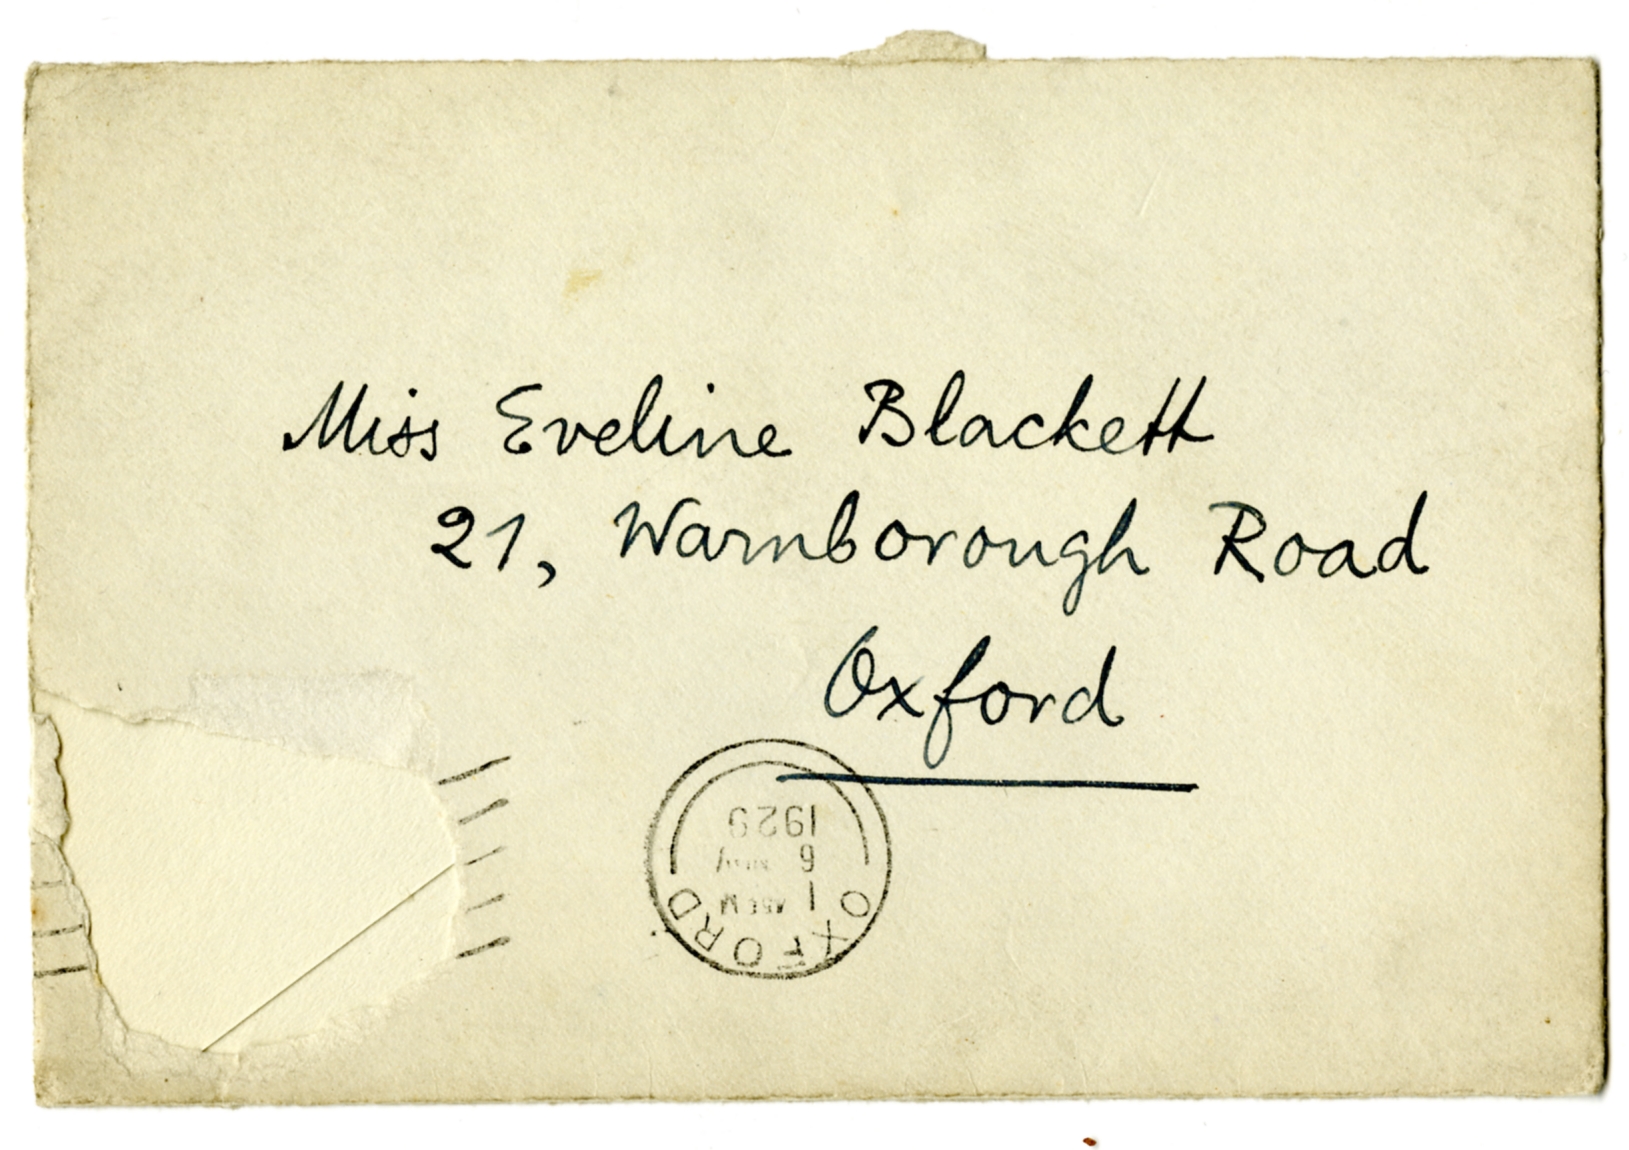 Miss Eveline Blackett
21, Warnborough Road
Oxford
OXFORD
1
6
1929